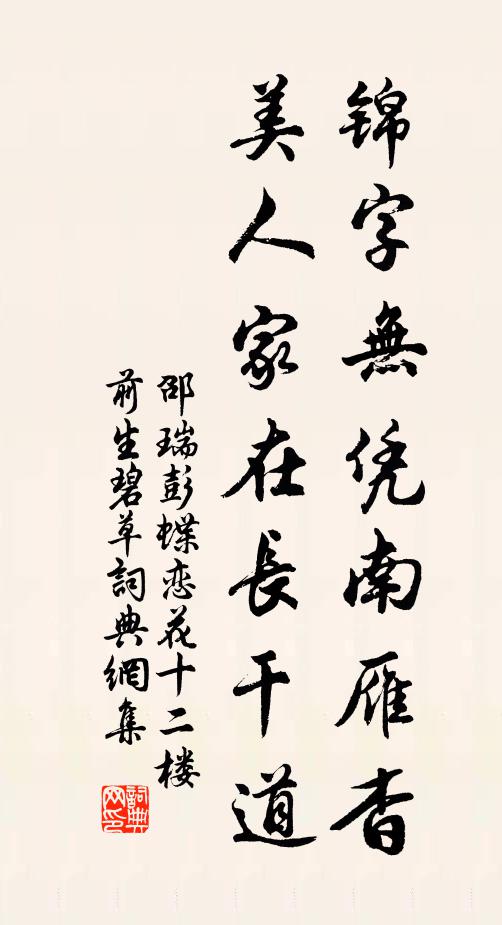 锦字無凭南雁杳
美人家在長干道
邵瑞彭蝶恋花十二楼
前生碧草詞典網集
詞典
网印